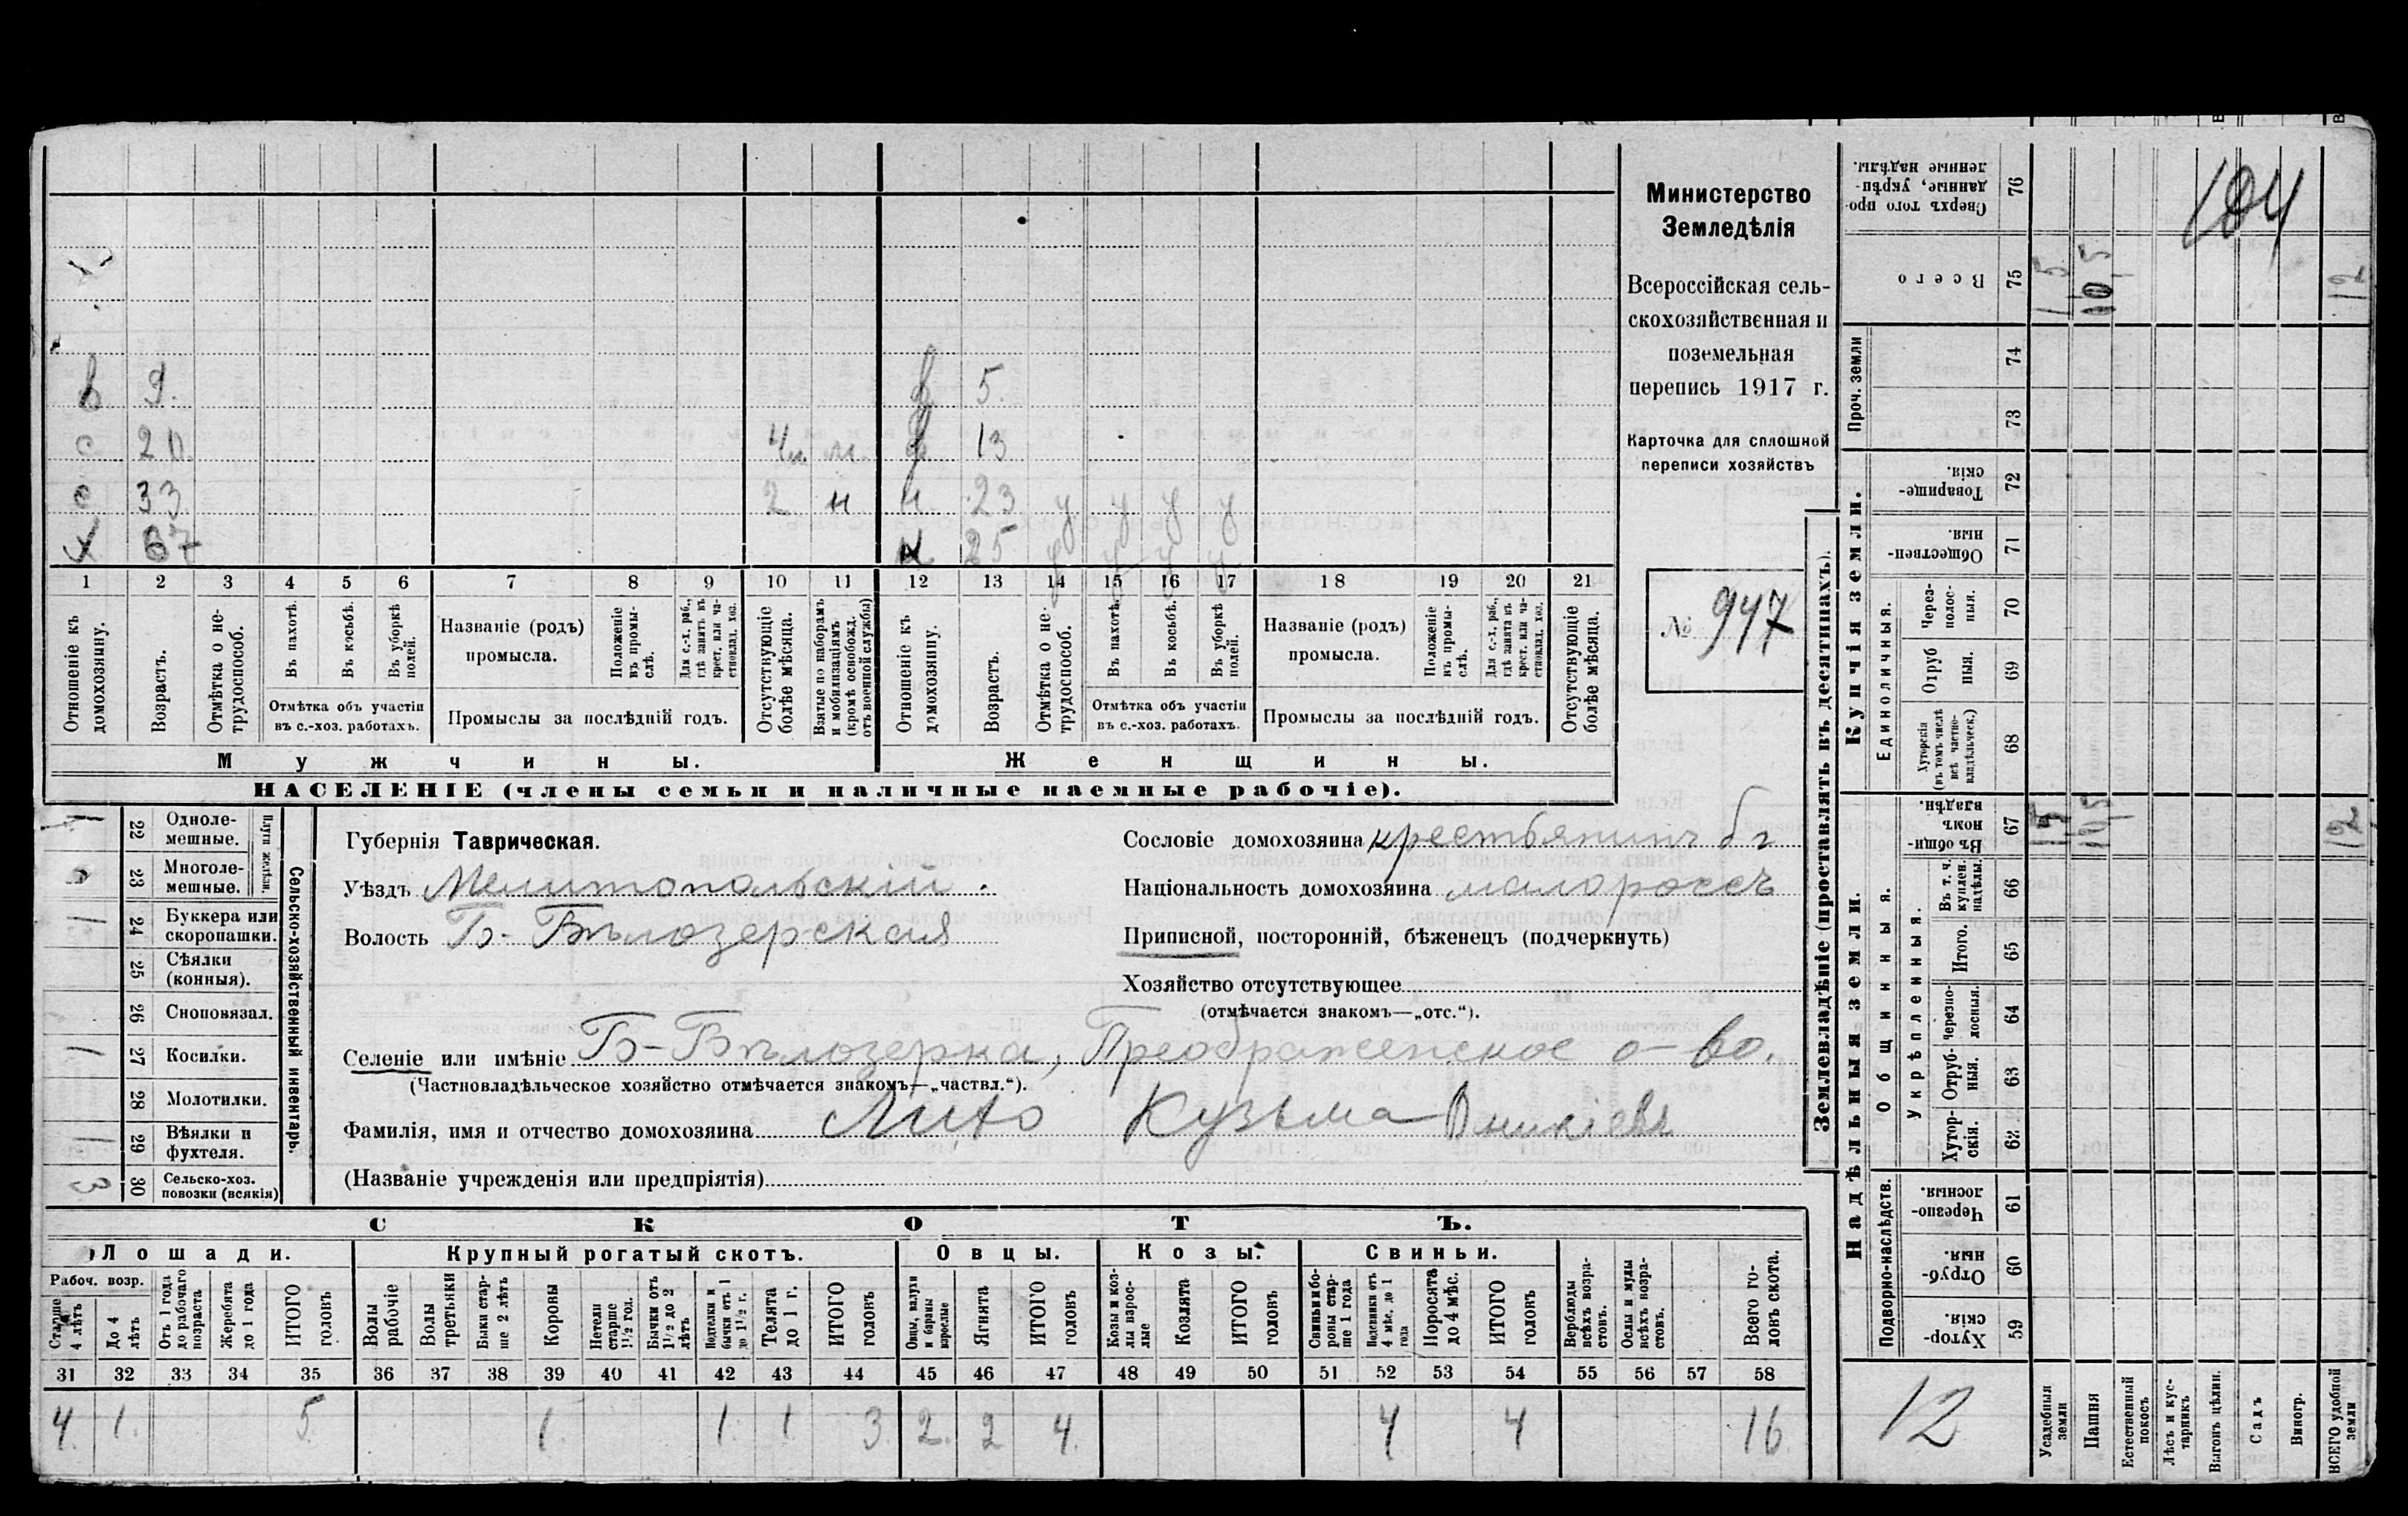 в 9. в 5.
с 20. 4 м. м. в 13
с 33 2 н н. 23 у у у у
х 67 н 25 у у у у
1 2 3 4 5 6 7 8 9 10 11 12 13 14 15 16 17 18 19 20 21
Отношеніе къ домохозяину.
Возрастъ.
Отмѣтка о не-трудоспособ.
Въ пахотѣ.
Въ косьбѣ.
Въ уборкѣ полей.
Отмѣтка объ участіи
въ с.-хоз. работахъ.
Названіе (родъ)
промысла.
Положеніе въ промы-слѣ.
Для с.-х. раб., гдѣ занятъ въ крест. или ча-стновлад. хоз.
Промыслы за послѣдній годъ.
Отсутствующіе болѣе мѣсяца.
Взятые по наборамъ и мобилизаціямъ (кромѣ освобожд. отъ военной службы)
Отношеніе къ домохозяину.
Возрастъ.
Отмѣтка о не-трудоспособ.
Въ пахотѣ.
Въ косьбѣ.
Въ уборкѣ полей.
Отмѣтка объ участіи
въ с.-хоз. работахъ.
Названіе (родъ)
промысла.
Положеніе въ промы-слѣ.
Для с.-х. раб., гдѣ занята въ крест. или ча-стновлад. хоз.
Промыслы за послѣдній годъ.
Отсутствующіе болѣе мѣсяца.
Мужчины. Женщины.
НАСЕЛЕНІЕ (члены семьи и наличные наемные рабочіе).
Министерство
Земледѣлія
Всероссійская сель-
скохозяйственная и
поземельная
перепись 1917 г.
Карточка для сплошной
переписи хозяйствъ
№ 947
Сельско-хозяйственный инвентарь.
Плуги желѣзн.
1 22 Одноле-мешные.
23 Многоле-мешные.
1 24 Буккера или скоропашки.
25 Сѣялки (конныя).
26 Сноповязал.
1 27 Косилки.
28 Молотилки.
1 29 Вѣялки и фухтеля.
3 30 Сельско-хоз. повозки (всякія)
Губернія Таврическая.
Уѣздъ Мелитопольскій.
Волость Б-Бѣлозерская
Сословіе домохозяина крестьянинъ
Національность домохозяина малороссъ
Приписной, посторонній, бѣженецъ (подчеркнуть)
Хозяйство отсутствующее
(отмѣчается знакомъ—„отс.“).
Селеніе или имѣніе Б-Бѣлозерка, Преображенское о-во.
(Частновладѣльческое хозяйство отмѣчается знакомъ—„частвл.“).
Фамилія, имя и отчество домохозяина Кузьма
(Названіе учрежденія или предпріятія)
СКОТЪ.
Лошади. Крупный рогатый скотъ. Овцы. Козы. Свиньи.
Рабоч. возр.
Старше 4 лѣтъ
До 4 лѣтъ
Отъ 1 года до рабочаго возраста
Жеребята до 1 года
ИТОГО головъ
Волы рабочіе
Волы третьяки
Быки стар-ше 2 лѣтъ
Коровы
Нетели старше 1½ год.
Бычки отъ 1½ до 2 лѣтъ
Подтелки и бычки отъ 1 до 1½ г.
Телята до 1 г.
ИТОГО головъ
Овцы, валухи и бараны взрослые
Ягнята
ИТОГО головъ
Козы и коз-лы взрос-лые
Козлята
ИТОГО головъ
Свиньи и бо-ровы стар-ше 1 года
Подсвинки отъ 4 мѣс. до 1 года
Поросята до 4 мѣс.
ИТОГО головъ
Верблюды всѣхъ возра-стовъ.
Ослы и мулы всѣхъ возра-стовъ.
Всего го-ловъ скота.
31 32 33 34 35 36 37 38 39 40 41 42 43 44 45 46 47 48 49 50 51 52 53 54 55 56 57 58
4. 1. 5 1. 1. 1 3 2. 2 4. 4 4 16
Землевладѣніе (проставлять въ десятинахъ).
Сверхъ того про-данные, укрѣп-ленные надѣлы. 76
104
Всего 75 1,5 10,5 12
Проч. земли 74 73
Купчія земли.
Товарище-скія. 72
Обществен-ныя. 71
Единоличныя.
Через-полос-ныя. 70
Отруб ныя. 69
Хуторскія (въ томъ числѣ всѣ частно-владѣльческ.) 68
Надѣльныя земли.
Общинныя.
Въ общи-номъ владѣн. 67 1,5 10,5 12
Укрѣпленныя.
Въ т. ч. куплен. надѣлы. 66
Итого. 65
Черезпо-лосныя. 64
Отруб-ныя. 63
Хутор-скія. 62
Подворно-наслѣдств.
Черезпо-лосныя 61
Отруб-ныя. 60
Хутор-скія. 59
12
Усадебныя земли
Пашня
Естественный покосъ
Лѣсъ и кус-тарникъ
Выгонъ цѣлин.
Садъ
Виногр.
ВСЕГО удобной земли